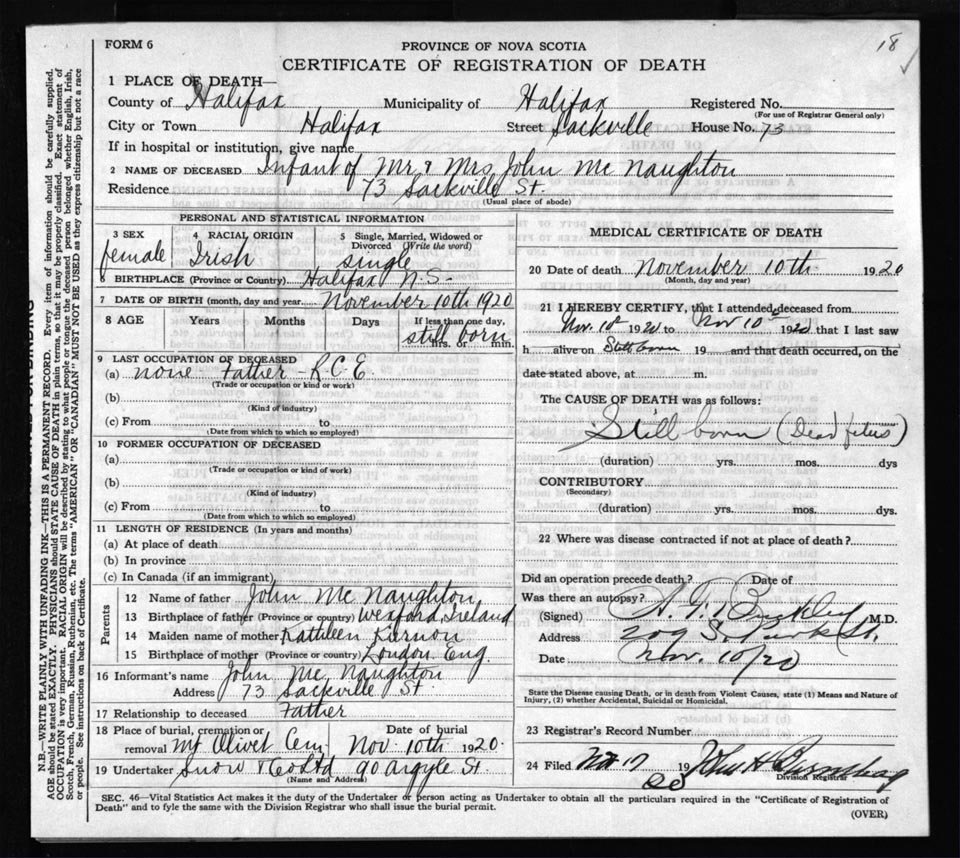 FORM 6
18
PROVINCE OF NOVA SCOTIA
CERTIFICATE OF REGISTRATION OF DEATH
1 PLACE OF DEATH—
County of Halifax Municipality of Halifax Registered No.
(For use of Registrar General only)
City or Town Halifax Street Sackville House No. 73
If in hospital or institution, give name
2 NAME OF DECEASED Infant of Mr & Mrs John Mc Naughton
Residence 73 Sackville St.
(Usual place of abode)
PERSONAL AND STATISTICAL INFORMATION
3 SEX 4 RACIAL ORIGIN 5 Single, Married, Widowed or Divorced (Write the word)
female Irish single
6 BIRTHPLACE (Province or Country) Halifax N.S.
7 DATE OF BIRTH (month, day and year) November 10th 1920
8 AGE Years Months Days If less than one day, still born hrs. or min.
9 LAST OCCUPATION OF DECEASED
(a) none Father - R.C.E
(Trade or occupation or kind of work)
(b)
(Kind of industry)
(c) From to
(Date from which to which so employed)
10 FORMER OCCUPATION OF DECEASED
(a)
(Trade or occupation or kind of work)
(b)
(Kind of industry)
(c) From to
(Date from which to which so employed)
11 LENGTH OF RESIDENCE (In years and months)
(a) At place of death
(b) In province
(c) In Canada (if an immigrant)
Parents
12 Name of father John Mc Naughton
13 Birthplace of father (Province or country) Wexford, Ireland
14 Maiden name of mother Kathleen Kernon
15 Birthplace of mother (Province or country) London Eng.
16 Informant's name John Mc Naughton
Address 73 Sackville St.
17 Relationship to deceased Father
18 Place of burial, cremation or removal Mt Olivet Cem Date of burial Nov. 10th 1920.
19 Undertaker Snow & Co Ltd 90 Argyle St.
(Name and Address)
MEDICAL CERTIFICATE OF DEATH
20 Date of death November 10th 1920
(Month, day and year)
21 I HEREBY CERTIFY, that I attended deceased from
Nov. 10th 1920 to Nov 10th 1920 that I last saw
h alive on Still born 19 and that death occurred, on the
date stated above, at m.
The CAUSE OF DEATH was as follows:
Still born (Dead fetus)
(duration) yrs. mos. dys
CONTRIBUTORY
(Secondary)
(duration) yrs. mos. dys.
22 Where was disease contracted if not at place of death?
Did an operation precede death? Date of
Was there an autopsy?
(Signed) M.D.
Address 209 S. Park St.
Date Nov. 10/20
State the Disease causing Death, or in death from Violent Causes, state (1) Means and Nature of
Injury, (2) whether Accidental, Suicidal or Homicidal.
23 Registrar's Record Number
24 Filed Nov 17 19 20 John H
Division Registrar
SEC. 46—Vital Statistics Act makes it the duty of the Undertaker or person acting as Undertaker to obtain all the particulars required in the "Certificate of Registration of
Death" and to fyle the same with the Division Registrar who shall issue the burial permit.
(OVER)
N.B.—WRITE PLAINLY WITH UNFADING INK—THIS IS A PERMANENT RECORD. Every item of information should be carefully supplied.
AGE should be stated EXACTLY. PHYSICIANS should STATE CAUSE OF DEATH in plain terms, so that it may be properly classified. Exact statement of
OCCUPATION is very important. RACIAL ORIGIN will be described by stating to what people or tongue the deceased person belonged whether English, Irish,
Scotch, French, German, Russian, Ruthenian, etc. The terms "AMERICAN" OR "CANADIAN" MUST NOT BE USED as they express citizenship but not a race
or people. See instructions on back of Certificate.